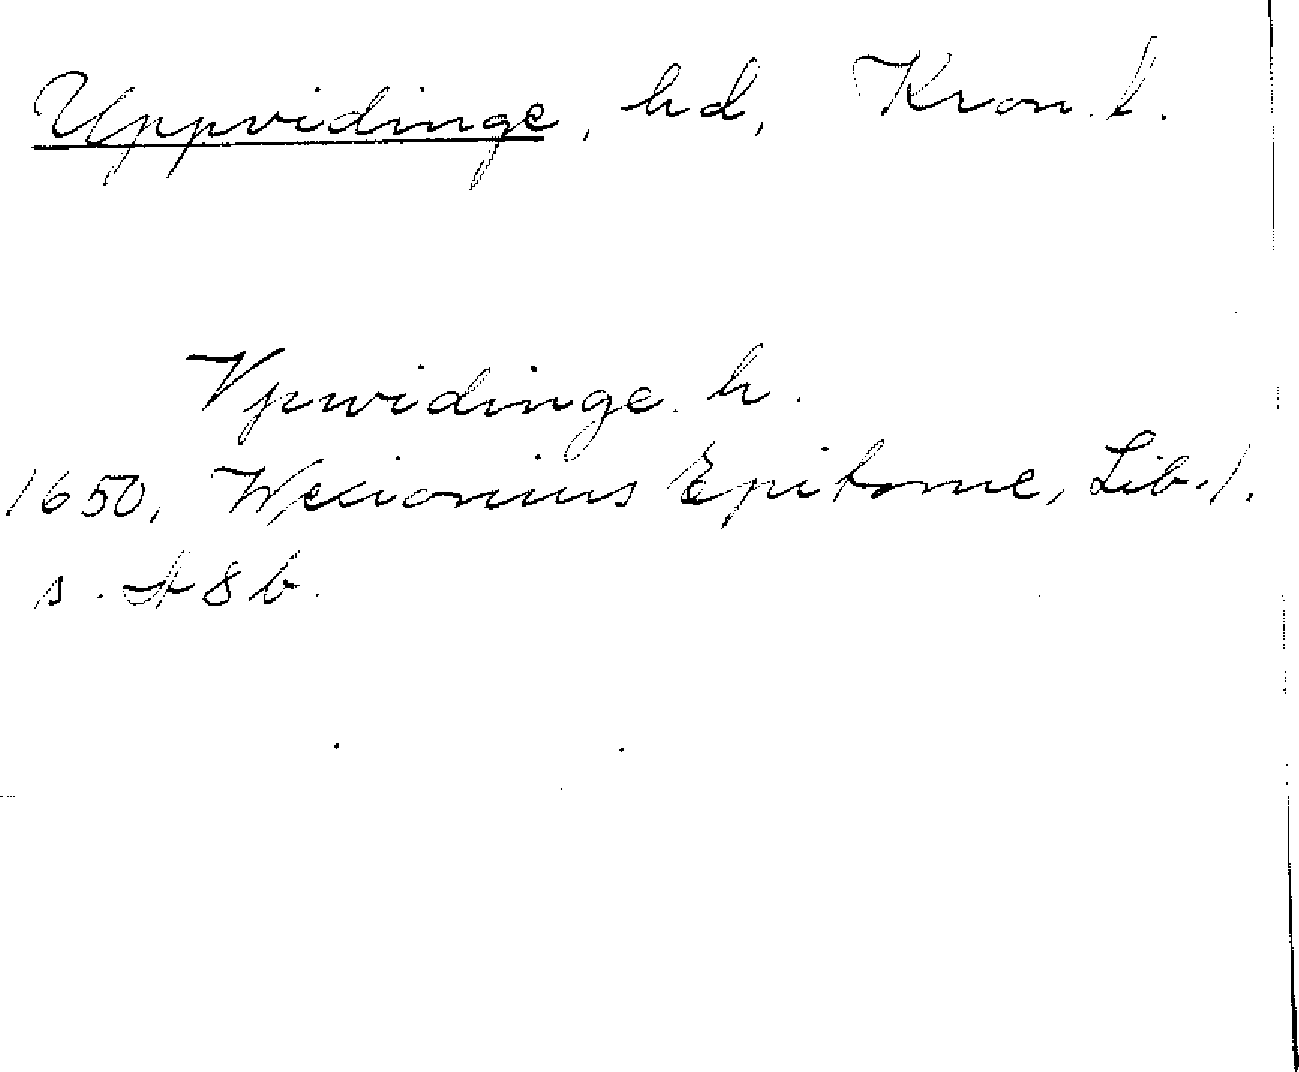 Uppvidinge, hd, Kron. l.
Vpwidinge. h.
1650, Wexionius Epitome, Lib. 1.
s. A8b.